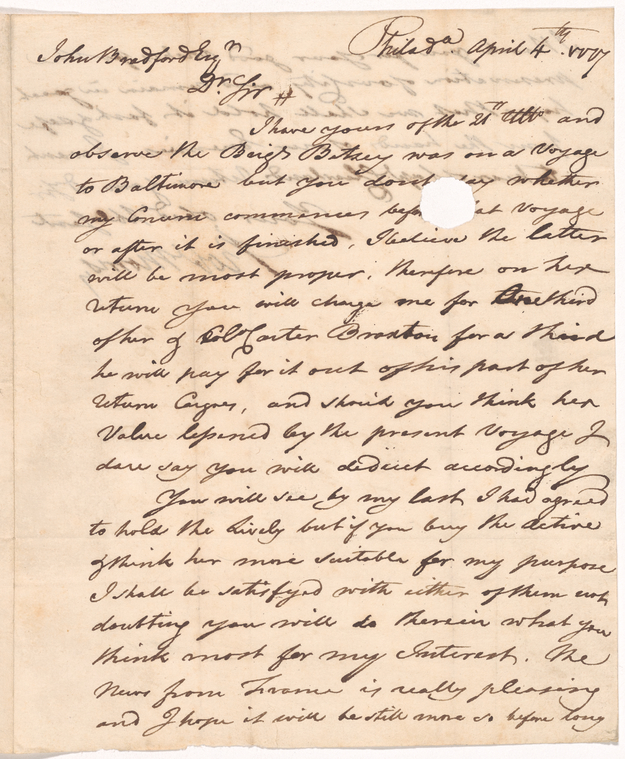 John Bradford Esqr
Philada. April 4th. 1777
Dr. Sir #
I have yours of the 21st Ulto. and
observe the Brigt Betsey was on a Voyage
to Baltimore but you dont say whether
my Concern commences befo at Voyage
or after it is finished, I believe the latter
will be most proper, therefore on her
return you will charge me for One third
of her & Colo Carter Braxton for a third
he will pay for it out of his part of her
return Cargoes, and shoud you think her
Value lessened by the present Voyage I
dare say you will deduct accordingly
You will see by my last I had agreed
to hold the Lively but if you buy the Active
& think her more suitable for my purpose
I shall be satisfyed with either of them not
doubting you will do therein what you
think most for my Interest. The
News from France is really pleasing
and I hope it will be still more so before long